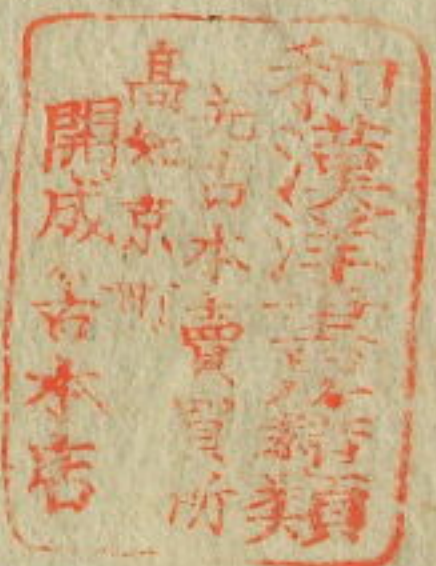 和漢洋書籍類
古本賣買所
高知京町
開成古本店